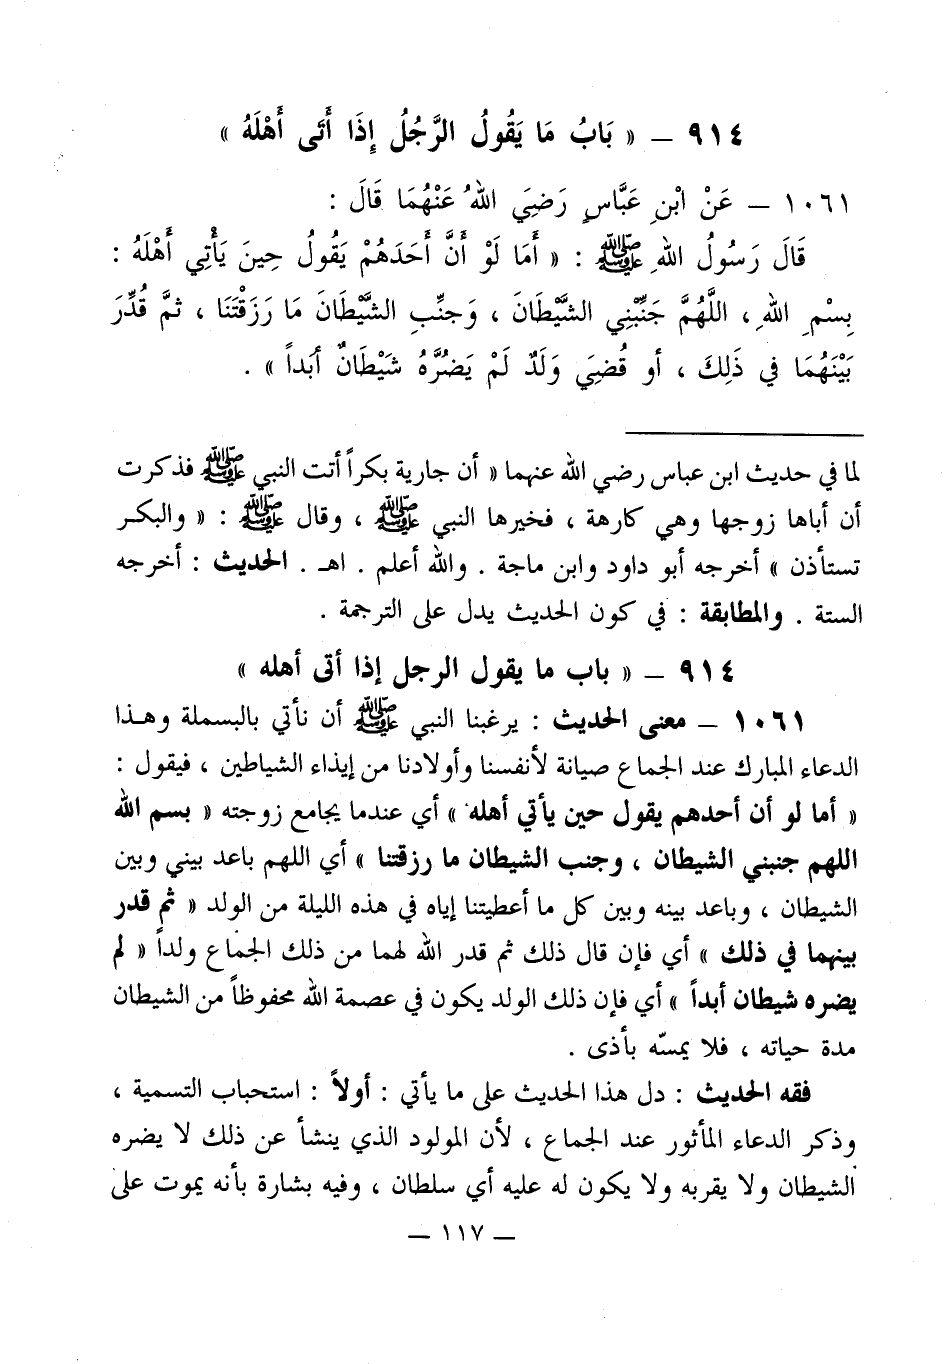 ٩١٤ ــ « بَابُ مَا يَقُولُ الرَّجُلُ إِذَا أَتَى أَهْلَهُ »
١٠٦١ ــ عَنْ ابْنِ عَبَّاسٍ رَضِيَ اللهُ عَنْهُمَا قَالَ :
قَالَ رَسُولُ اللهِ ﷺ : « أَمَا لَوْ أَنَّ أَحَدَهُمْ يَقُولُ حِينَ يَأْتِي أَهْلَهُ :
بِسْمِ اللهِ ، اللَّهُمَّ جَنِّبْنِي الشَّيْطَانَ ، وَجَنِّبِ الشَّيْطَانَ مَا رَزَقْتَنَا ، ثمَّ قُدِّرَ
بَيْنَهُمَا في ذَلِكَ ، أو قُضِيَ وَلَدٌ لَمْ يَضُرَّهُ شَيْطَانٌ أبَداً » .
لما في حديث ابن عباس رضي الله عنهما « أن جارية بكراً أتت النبي ﷺ فذكرت
أن أباها زوجها وهي كارهة ، فخيرها النبي ﷺ ، وقال ﷺ : « والبكر
تستأذن » أخرجه أبو داود وابن ماجة . والله أعلم . اهـ . الحديث : أخرجه
الستة . والمطابقة : في كون الحديث يدل على الترجمة .
٩١٤ ــ « باب ما يقول الرجل إذا أتى أهله »
١٠٦١ ــ معنى الحديث : يرغبنا النبي ﷺ أن نأتي بالبسملة وهذا
الدعاء المبارك عند الجماع صيانة لأنفسنا وأولادنا من إيذاء الشياطين ، فيقول :
« أما لو أن أحدهم يقول حين يأتي أهله » أي عندما يجامع زوجته « بسم الله
اللهم جنبني الشيطان ، وجنب الشيطان ما رزقتنا » أي اللهم باعد بيني وبين
الشيطان ، وباعد بينه وبين كل ما أعطيتنا إياه في هذه الليلة من الولد « ثم قدر
بينهما في ذلك » أي فإن قال ذلك ثم قدر الله لهما من ذلك الجماع ولداً « لم
يضره شيطان أبداً » أي فإن ذلك الولد يكون في عصمة الله محفوظاً من الشيطان
مدة حياته ، فلا يمسّه بأذى .
فقه الحديث : دل هذا الحديث على ما يأتي : أولاً : استحباب التسمية ،
وذكر الدعاء المأثور عند الجماع ، لأن المولود الذي ينشأ عن ذلك لا يضره
الشيطان ولا يقربه ولا يكون له عليه أي سلطان ، وفيه بشارة بأنه يموت على
ــ ١١٧ ــ